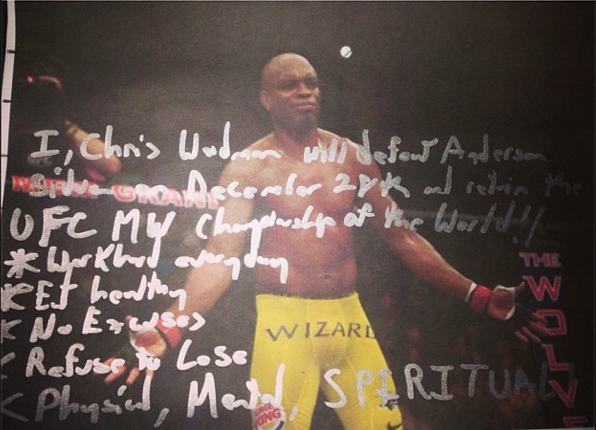 I, Chris Weidman will defeat Anderson
Silva on December 28th and retain the
UFC MW Championship of the World!!
* Work hard everyday
* Eat healthy
* No Excuses
* Refuse to Lose
* Physical, Mental, SPIRITUAL
GRANT
WIZARD
KING
THE
WOLVE